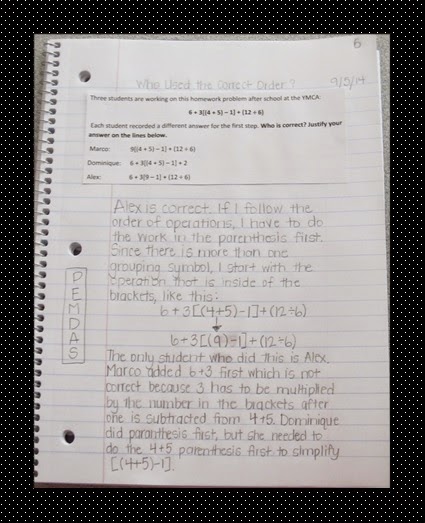 B
Who Used the Correct Order? 9/5/14
Three students are working on this homework problem after school at the YMCA:
6 + 3[(4 + 5) − 1] + (12 ÷ 6)
Each student recorded a different answer for the first step. Who is correct? Justify your
answer on the lines below.
Marco: 9[(4 + 5) − 1] + (12 ÷ 6)
Dominique: 6 + 3[(4 + 5) − 1] + 2
Alex: 6 + 3[9 − 1] + (12 ÷ 6)
Alex is correct. If I follow the
order of operations, I have to do
the work in the parenthesis first.
Since there is more than one
grouping symbol, I start with the
operation that is inside of the
brackets, like this:
6+3[(4+5)-1]+(12÷6)
↓
6+3[(9)-1]+(12÷6)
The only student who did this is Alex.
Marco added 6+3 first which is not
correct because 3 has to be multiplied
by the number in the brackets after
one is subtracted from 4+5. Dominique
did paranthesis first, but she needed to
do the 4+5 parenthesis first to simplify
[(4+5)-1].
P
E
M
D
A
S